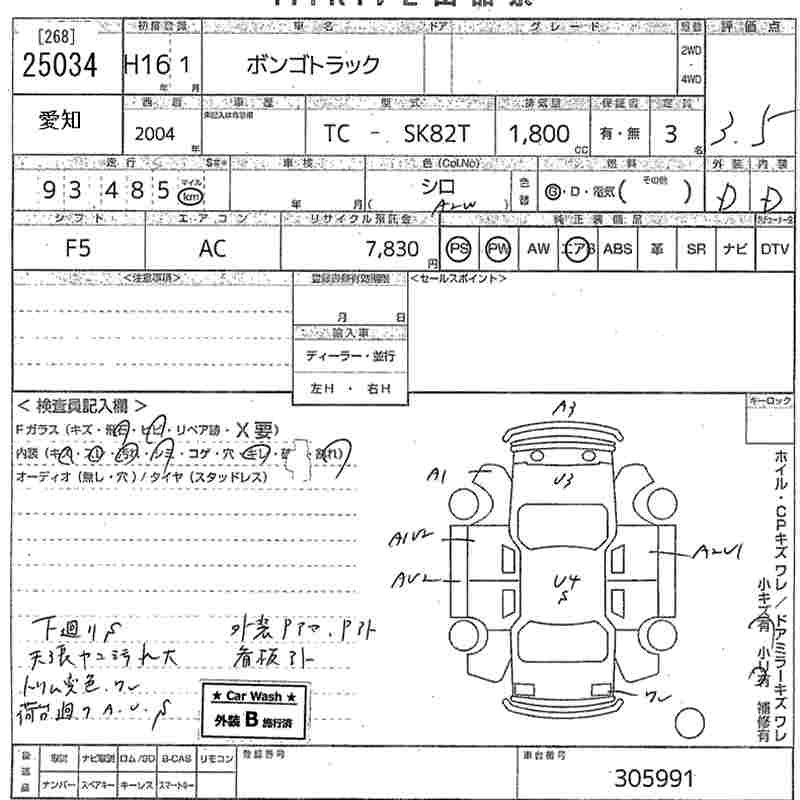 [268] 初度登録 車名 ドア グレード 駆動 評価点
25034 H16年 1月 ボンゴトラック 2WD・4WD 3.5
愛知 西暦 車歴 型式 排気量 保証書 定員
未記入は自家用
2004年 TC - SK82T 1,800cc 有・無 3名
走行 車検 色(Col.No) 燃料 外装 内装
93 485 マイル km 年 月 シロ ( A2W ) 色替 G・D・電気( その他 ) D D
シフト エアコン リサイクル預託金 純正装備品
F5 AC 7,830円 PS PW AW エアB ABS 革 SR ナビ DTV
<注意事項> 登録書類有効期限 <セールスポイント>
月 日
輸入車
ディーラー・並行
左H ・ 右H
<検査員記入欄> キーロック
Fガラス(キズ・飛石・ヒビ・リペア跡・X要)
内装(キズ・スレ・汚れ・シミ・コゲ・穴・キレ・割れ)
オーディオ(無し・穴)/タイヤ(スタッドレス)
A3
U3
A1
A1U2
A2U1
AU2
U4
S
ワレ
ホイル・CPキズワレ/ドアミラーキズワレ
小キズ有 小U有 補修有
下廻りS 外装
天張ヤニ汚れ大 看板アト
トリム変色、ワレ
荷台廻りA.U.S
★ Car Wash ★
外装 B 施行済
後送品 取説 ナビ取説 ロム/SD B-CAS リモコン 登録番号 車台番号
ナンバー スペアキー キーレス スマートキー 305991